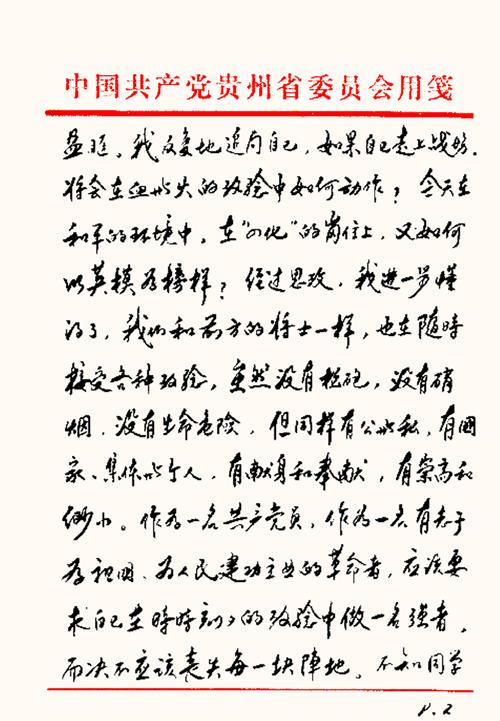 中国共产党贵州省委员会用笺
热泪。我反复地追问自己，如果自己走上战场，
将会在血与火的考验中如何动作？今天在
和平的环境中，在“四化”的岗位上，又如何
以英模为榜样？经过思考，我进一步懂
得了，我们和前方的将士一样，也在随時
接受各种考验，虽然没有枪砲，没有硝
烟、没有生命危险，但同样有公与私，有國
家、集体与个人，有献身和奉献，有崇高和
渺小。作为一名共产党员，作为一名有志于
为祖国、为人民建功立业的革命者，应该要
求自己在時時刻刻的考验中做一名强者，
而决不应该丧失每一块阵地。不知同学
P.2